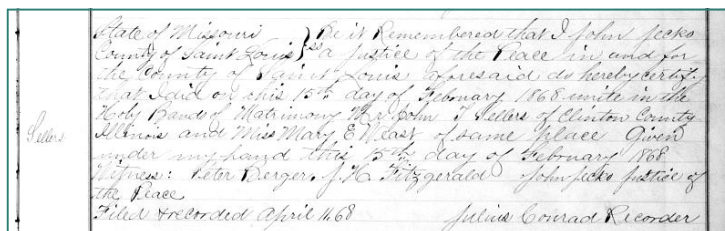 State of Missouri } Be it Remembered that I John Jecko
County of Saint Louis } ss a Justice of the Peace in and for
the County of Saint Louis aforesaid do hereby certify
that I did on this 15th day of February 1868 unite in the
Holy Bands of Matrimony Mr John T Sellers of Clinton County
Sellers
Illinois and Miss Mary E of same place Given
under my hand this 15th day of February 1868
Witness: Peter Berger, J. H. Fitzgerald John Jecko Justice of
the Peace
Filed & recorded April 68 Julius Conrad Recorder